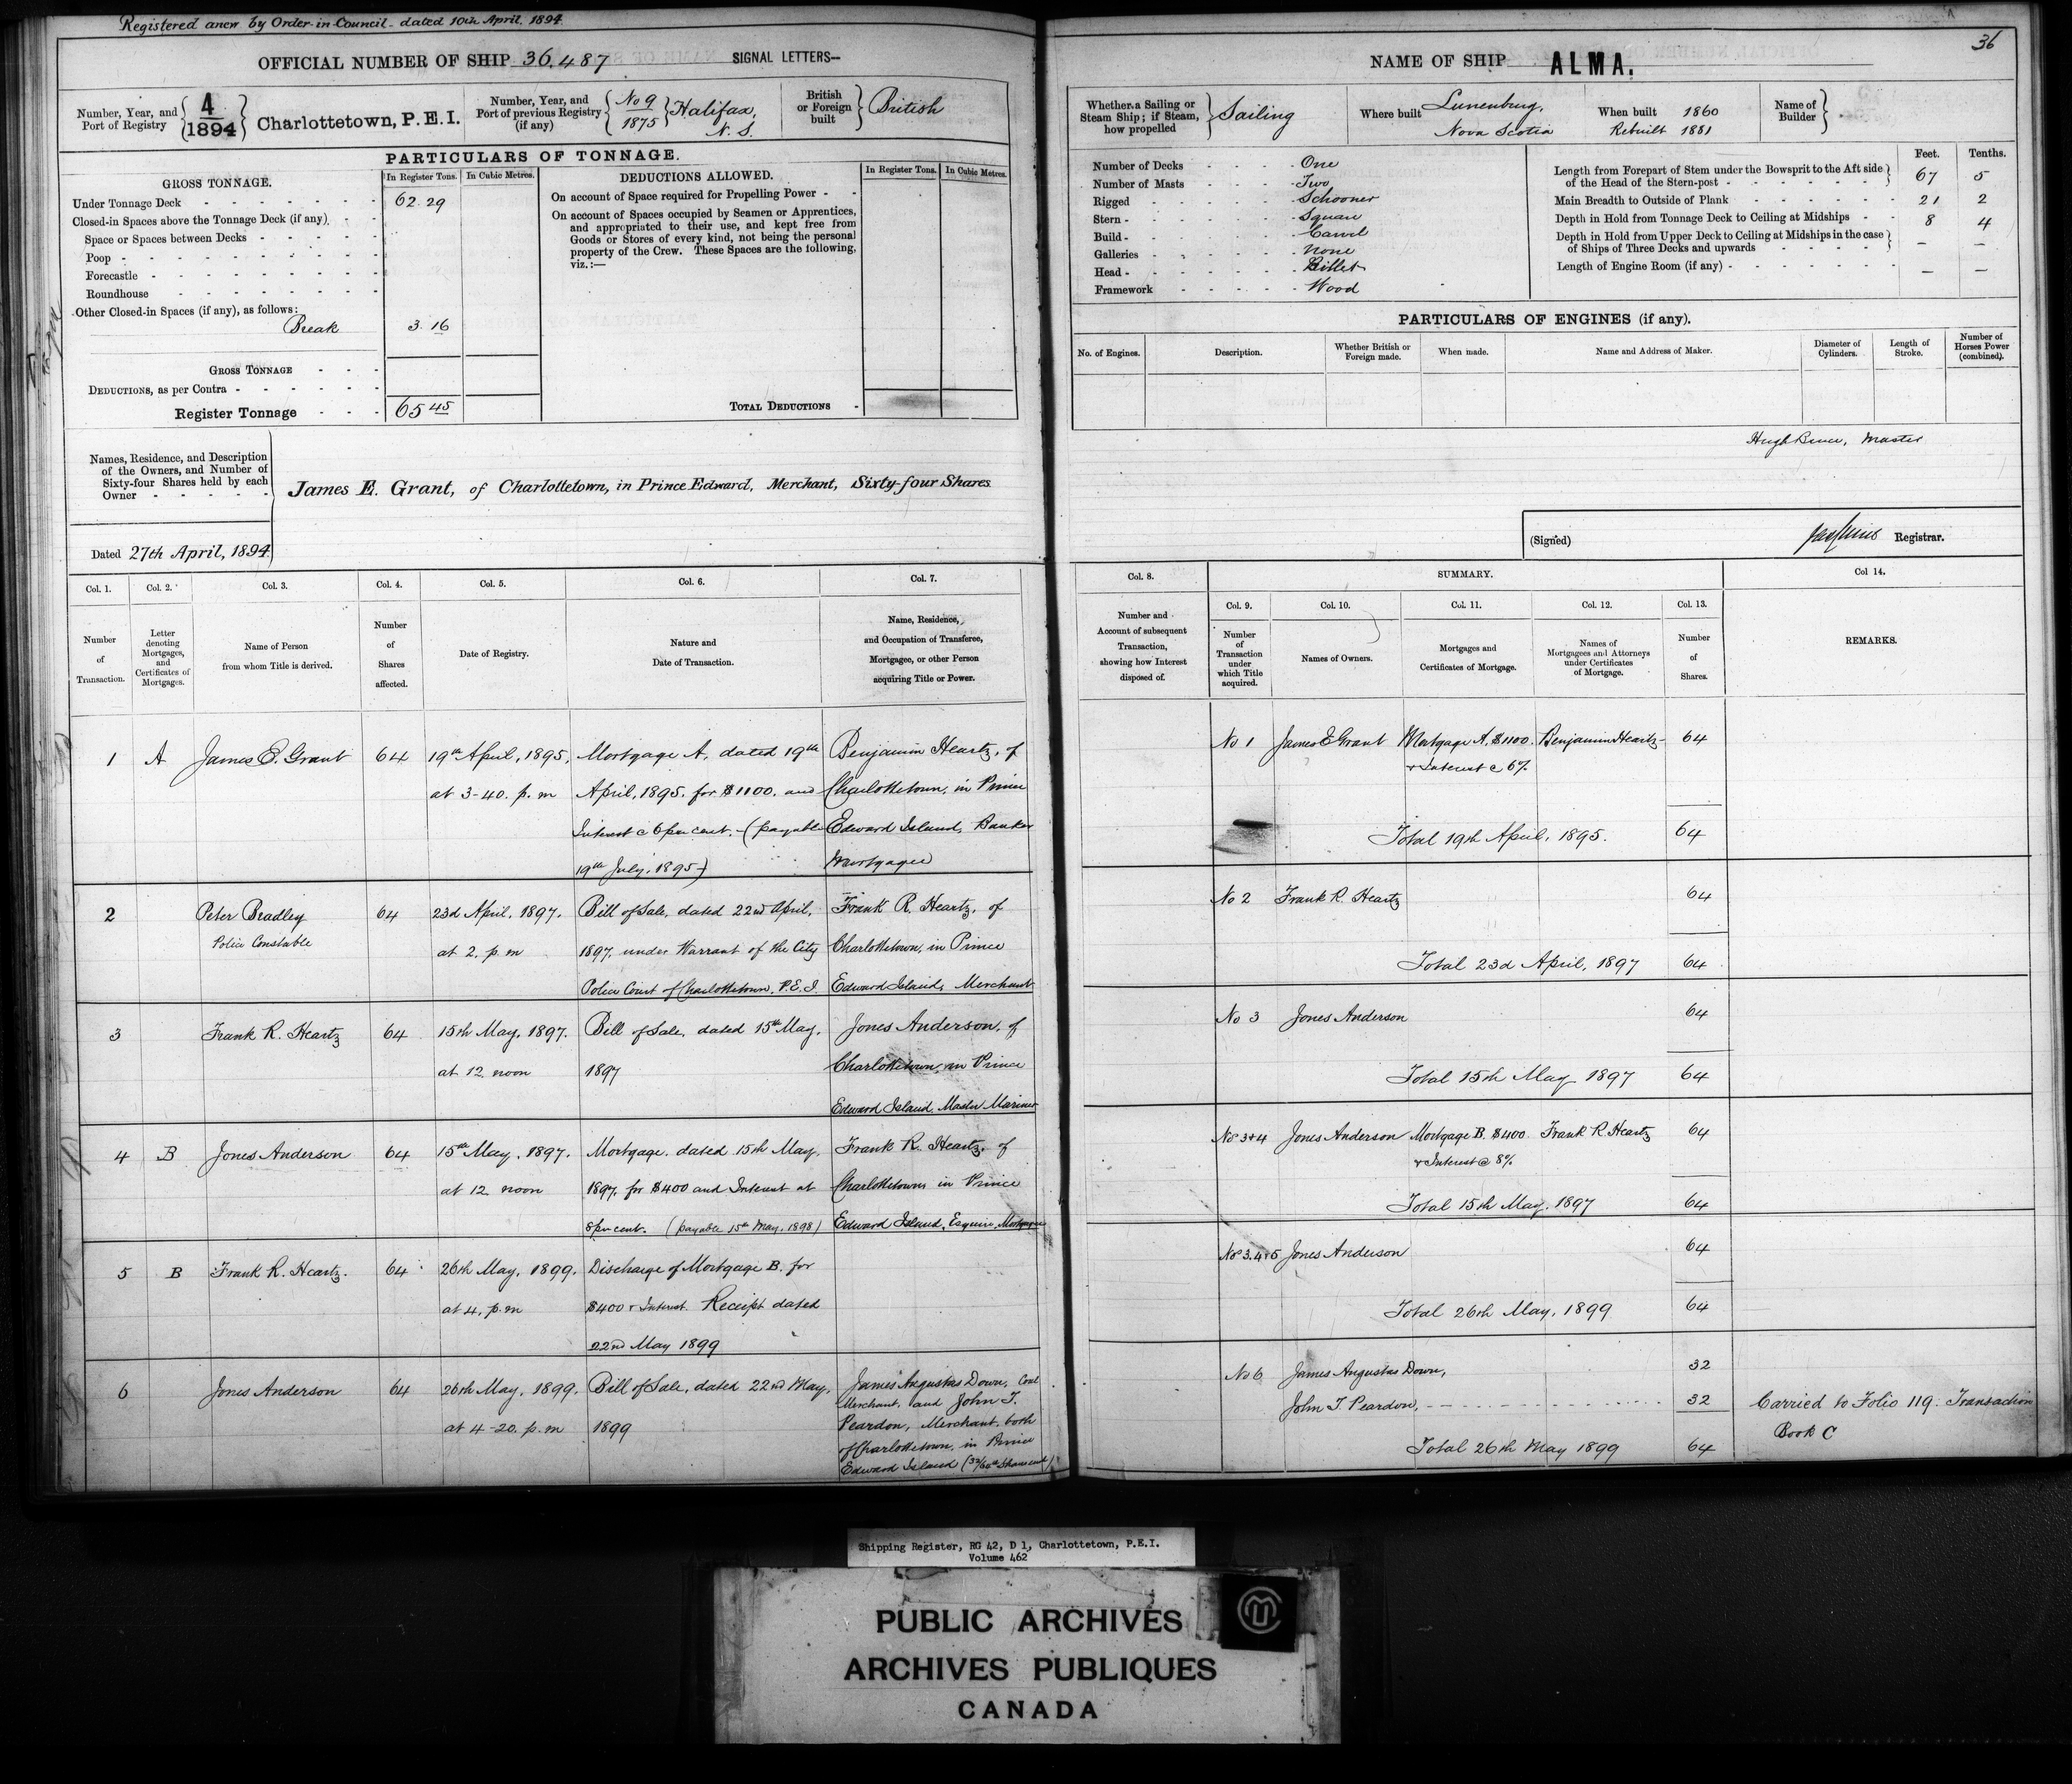 Registered anew by Order-in-Council - dated 10th April, 1894
OFFICIAL NUMBER OF SHIP 36,487 SIGNAL LETTERS—
Number, Year, and Port of Registry 4/1894 Charlottetown, P.E.I.
Number, Year, and Port of previous Registry (if any) No 9 1875 Halifax, N. S.
British or Foreign built British
PARTICULARS OF TONNAGE.
GROSS TONNAGE. In Register Tons. In Cubic Metres.
Under Tonnage Deck 62.29
Closed-in Spaces above the Tonnage Deck (if any)
Space or Spaces between Decks
Poop
Forecastle
Roundhouse
Other Closed-in Spaces (if any), as follows:
Break 3.16
GROSS TONNAGE
DEDUCTIONS, as per Contra
Register Tonnage 65 45
DEDUCTIONS ALLOWED. In Register Tons. In Cubic Metres.
On account of Space required for Propelling Power
On account of Spaces occupied by Seamen or Apprentices,
and appropriated to their use, and kept free from
Goods or Stores of every kind, not being the personal
property of the Crew. These Spaces are the following,
viz.:—
TOTAL DEDUCTIONS
Names, Residence, and Description
of the Owners, and Number of
Sixty-four Shares held by each
Owner
James E. Grant, of Charlottetown, in Prince Edward, Merchant, Sixty-four Shares
Dated 27th April, 1894
Col. 1. Col. 2. Col. 3. Col. 4. Col. 5. Col. 6. Col. 7.
Number of Transaction.
Letter denoting Mortgages, and Certificates of Mortgages.
Name of Person from whom Title is derived.
Number of Shares affected.
Date of Registry.
Nature and Date of Transaction.
Name, Residence, and Occupation of Transferee, Mortgagee, or other Person acquiring Title or Power.
1 A James E. Grant 64 19th April, 1895, Mortgage A, dated 19th Benjamin Heartz, of
at 3-40. p. m April, 1895, for $1100. and Charlottetown, in Prince
Interest @ 6 per cent. (payable Edward Island, Banker
19th July, 1895) Mortgagee
2 Peter Bradley 64 23d April, 1897. Bill of Sale, dated 22nd April, Frank R. Heartz, of
Police Constable at 2, p. m 1897, under Warrant of the City Charlottetown, in Prince
Police Court of Charlottetown, P.E.I. Edward Island, Merchant
3 Frank R. Heartz 64 15th May, 1897. Bill of Sale, dated 15th May, Jones Anderson, of
at 12 noon 1897 Charlottetown, in Prince
Edward Island, Master Mariner
4 B Jones Anderson 64 15th May, 1897. Mortgage, dated 15th May, Frank R. Heartz, of
at 12 noon 1897, for $400 and Interest at Charlottetown in Prince
8 per cent. (payable 15th May, 1898) Edward Island, Esquire, Mortgagee
5 B Frank R. Heartz. 64 26th May, 1899. Discharge of Mortgage B. for
at 4, p. m $400 & Interest. Receipt dated
22nd May 1899
6 Jones Anderson 64 26th May, 1899. Bill of Sale, dated 22nd May, James Augustus Down, Coal
at 4-20. p. m 1899 Merchant, and John T.
Peardon, Merchant, both
of Charlottetown, in Prince
Edward Island (32/64th Shares each)
36
NAME OF SHIP ALMA.
Whether a Sailing or Steam Ship; if Steam, how propelled Sailing
Where built Lunenburg, Nova Scotia
When built 1860
Rebuilt 1881
Name of Builder
Number of Decks One
Number of Masts Two
Rigged Schooner
Stern Square
Build Carvel
Galleries None
Head Billet
Framework Wood
Feet. Tenths.
Length from Forepart of Stem under the Bowsprit to the Aft side of the Head of the Stern-post 67 5
Main Breadth to Outside of Plank 21 2
Depth in Hold from Tonnage Deck to Ceiling at Midships 8 4
Depth in Hold from Upper Deck to Ceiling at Midships in the case of Ships of Three Decks and upwards — —
Length of Engine Room (if any) — —
PARTICULARS OF ENGINES (if any).
No. of Engines. Description. Whether British or Foreign made. When made. Name and Address of Maker. Diameter of Cylinders. Length of Stroke. Number of Horses Power (combined).
Hugh Master
(Signed) Registrar.
Col. 8. SUMMARY. Col 14.
Col. 9. Col. 10. Col. 11. Col. 12. Col. 13.
Number and Account of subsequent Transaction, showing how Interest disposed of.
Number of Transaction under which Title acquired.
Names of Owners.
Mortgages and Certificates of Mortgage.
Names of Mortgagees and Attorneys under Certificates of Mortgage.
Number of Shares.
REMARKS.
No 1 James E Grant Mortgage A, $1100. Benjamin Heartz 64
& Interest @ 6%
Total 19th April, 1895. 64
No 2 Frank R. Heartz 64
Total 23d April, 1897 64
No 3 Jones Anderson 64
Total 15th May 1897 64
Nos 3+4 Jones Anderson Mortgage B. $400. Frank R Heartz 64
& Interest @ 8%
Total 15th May, 1897 64
Nos 3.4+5 Jones Anderson 64
Total 26th May, 1899 64
No 6 James Augustus Down, 32
John T. Peardon, 32 Carried to Folio 119. Transaction
Book C
Total 26th May 1899 64
Shipping Register, RG 42, D 1, Charlottetown, P.E.I.
Volume 462
PUBLIC ARCHIVES
ARCHIVES PUBLIQUES
CANADA